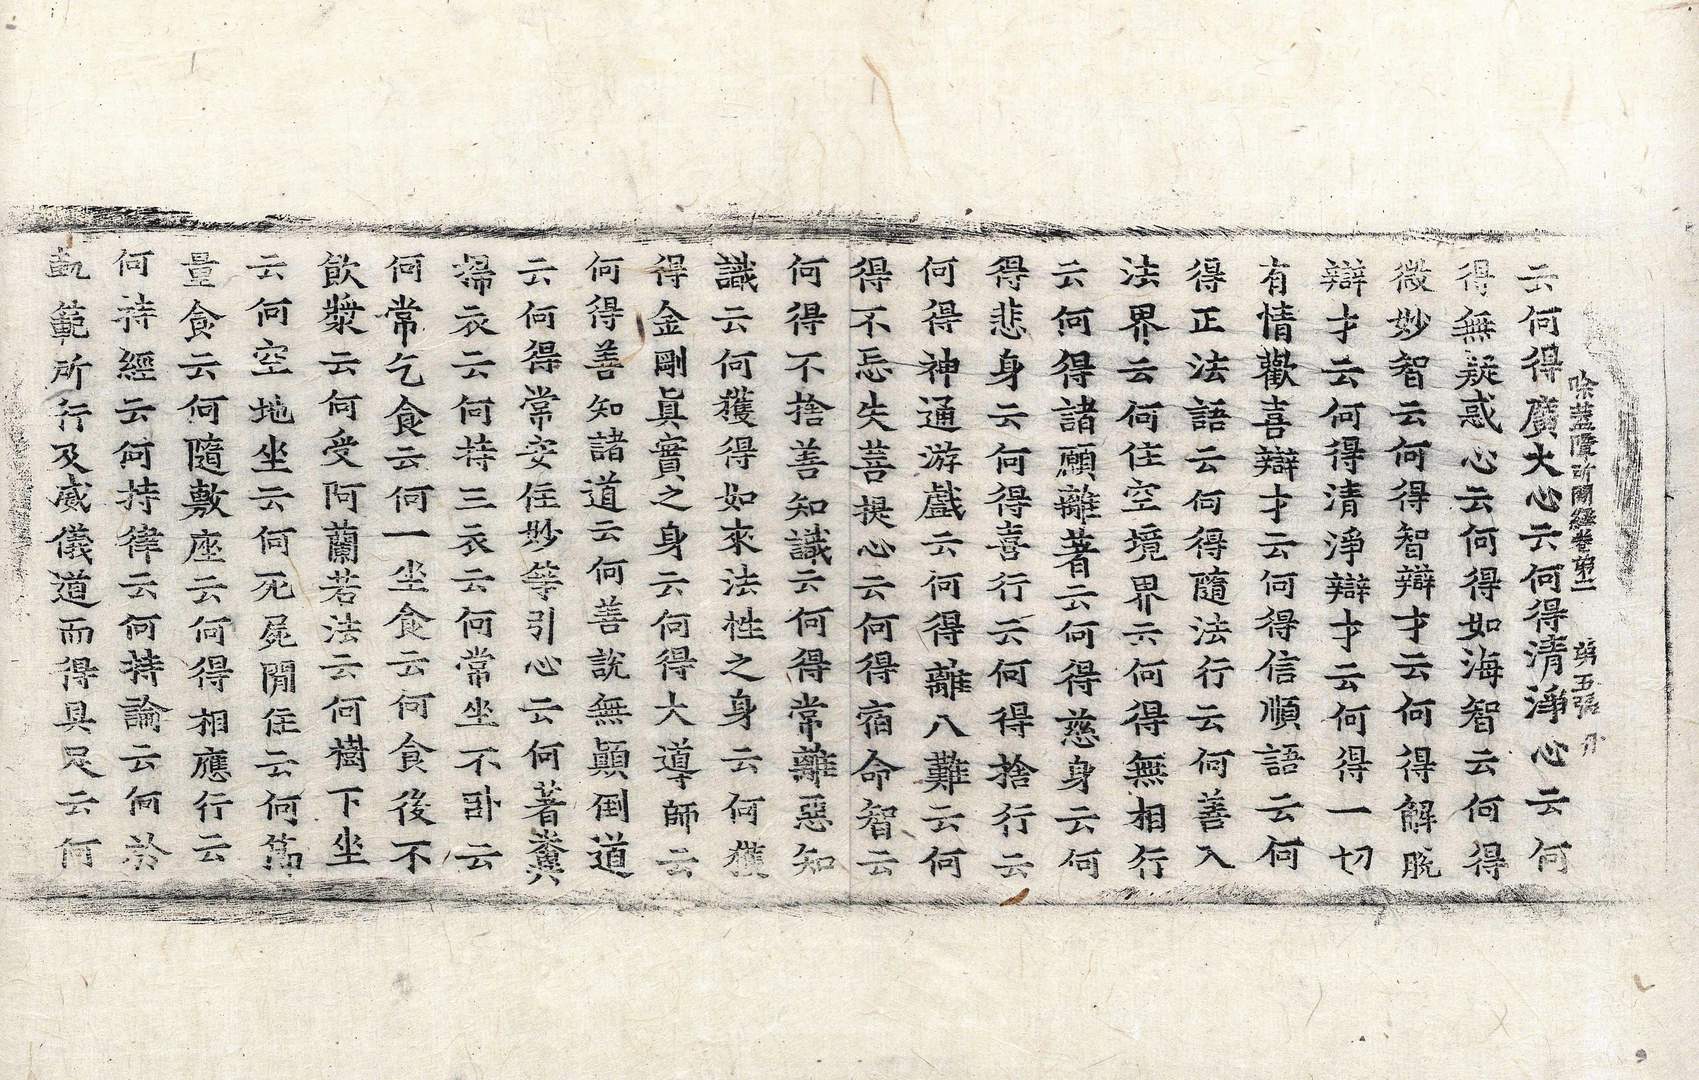 除蓋障所問經卷苐一 苐五張
云何得廣大心云何得清淨心云何
得無疑惑心云何得如海智云何得
微妙智云何得智辯才云何得解脫
辯才云何得清淨辯才云何得一切
有情歡喜辯才云何得信順語云何
得正法語云何得隨法行云何善入
法界云何住空境界云何得無相行
云何得諸願離著云何得慈身云何
得悲身云何得喜行云何得捨行云
何得神通游戲云何得離八難云何
得不忘失菩提心云何得宿命智云
何得不捨善知識云何得常離惡知
識云何獲得如來法性之身云何獲
得金剛眞實之身云何得大導師云
何得善知諸道云何善說無顚倒道
云何得常安住妙等引心云何著糞
掃衣云何持三衣云何常坐不卧云
何常乞食云何一坐食云何食後不
飮漿云何受阿蘭若法云何樹下坐
云何空地坐云何死屍閒住云何節
量食云何隨敷座云何得相應行云
何持經云何持律云何持論云何於
軌範所行及威儀道而得具足云何